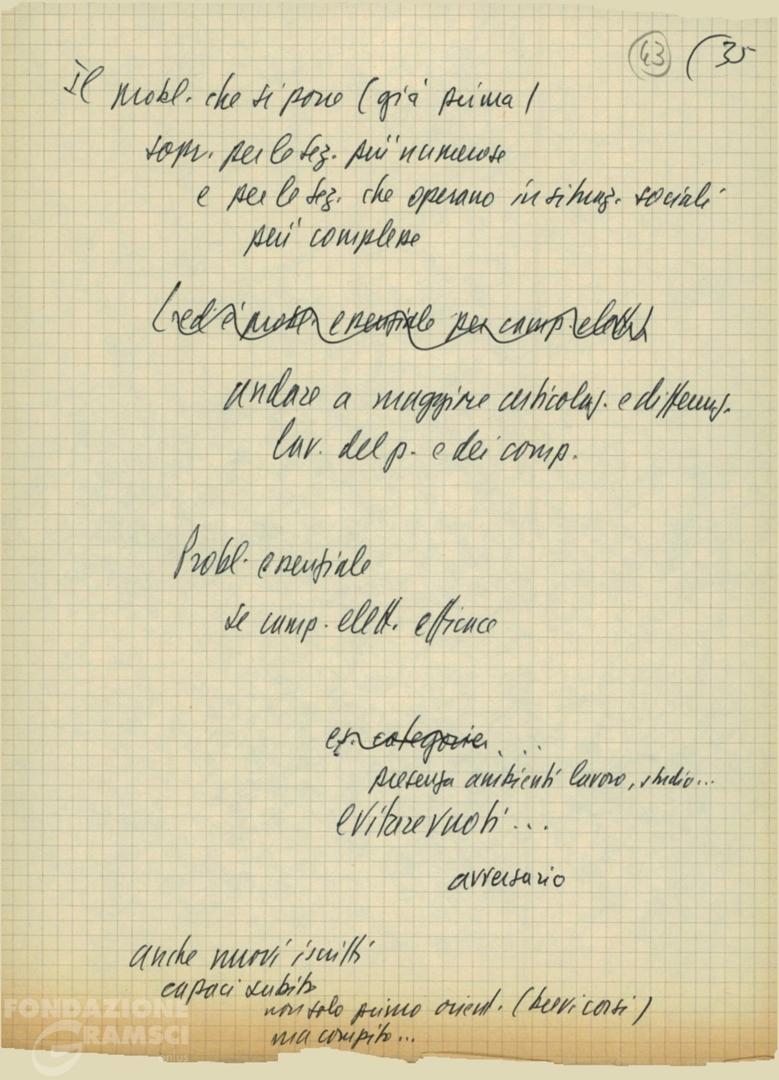 43 (35
Il probl. che si pone (già prima)
sopr. per le sez. più numerose
e per le sez. che operano in situaz. sociali
più complesse
(ed è probl. essenziale per camp. elett.)
andare a maggiore articolaz. e differenz.
lav. del p. e dei comp.
Probl. essenziale
se camp. elett. efficace
es. categorie ...
presenza ambienti lavoro, studio...
evitare vuoti ...
avversario
anche nuovi iscritti
capaci subito
non solo primo orient. (brevi corsi)
ma compito...
FONDAZIONE
GRAMSCI